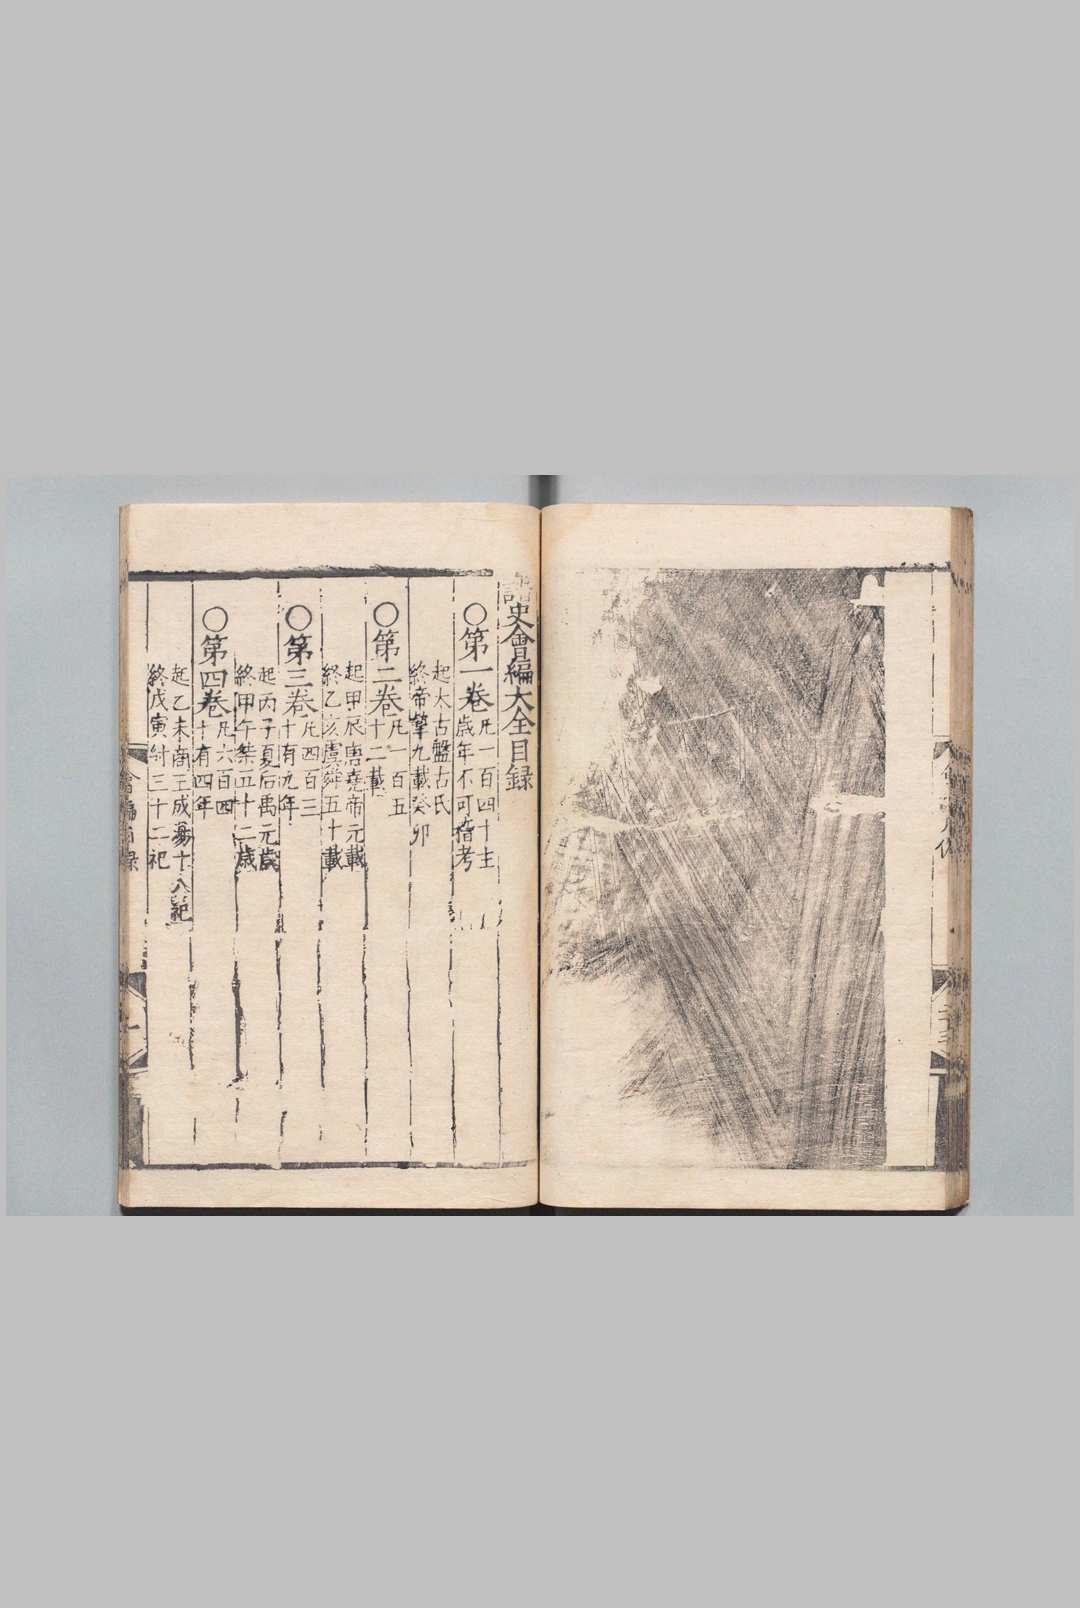 諸史會編大全目録
〇第一卷
凡一百四十主
歲年不可稽考
起太古盤古氏
終帝摯九載癸卯
〇第二卷
凡一百五
十二載
起甲辰唐堯帝元載
終乙亥虞舜五十載
〇第三卷
凡四百三
十有九年
起丙子夏后禹元歲
終甲午桀五十二歲
〇第四卷
凡六百四
十有四年
起乙未商王成湯十八祀
終戊寅紂三十二祀